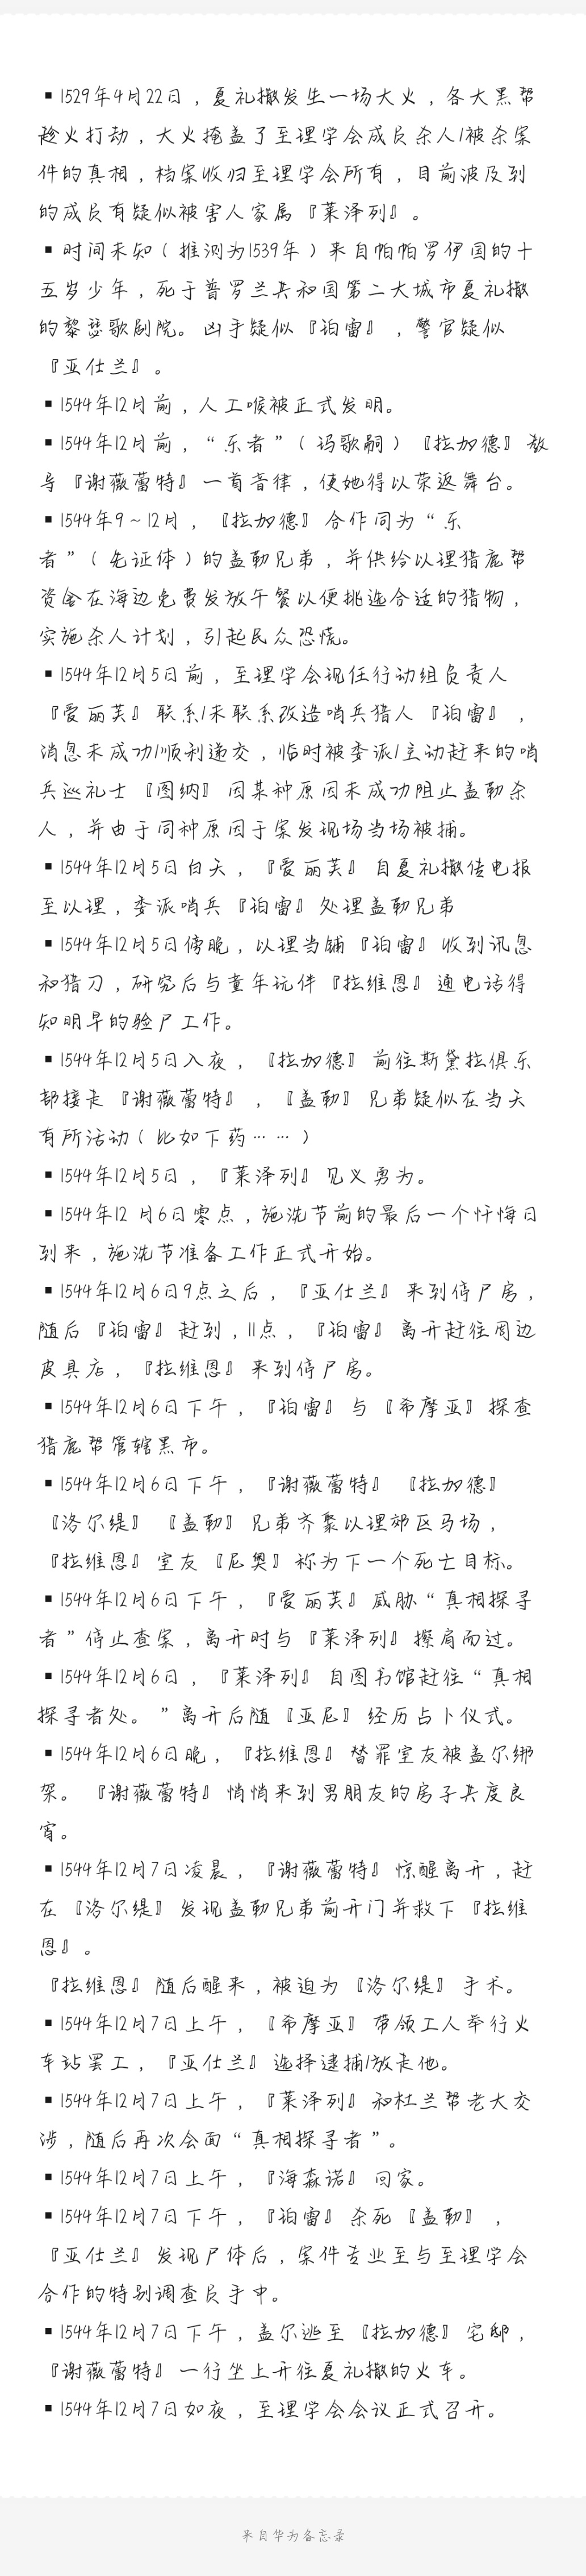 ▪1529年4月22日，夏礼撒发生一场大火，各大黑帮
趁火打劫，大火掩盖了至理学会成员杀人/被杀案
件的真相，档案收归至理学会所有，目前波及到
的成员有疑似被害人家属『莱泽列』。
▪时间未知（推测为1539年）来自帕帕罗伊国的十
五岁少年，死于普罗兰共和国第二大城市夏礼撒
的黎瑟歌剧院。凶手疑似『珀雷』，警官疑似
『亚仕兰』。
▪1544年12月前，人工喉被正式发明。
▪1544年12月前，“乐者”（玛歌嗣）『拉加德』教
导『谢薇蕾特』一首音律，使她得以荣返舞台。
▪1544年9～12月，『拉加德』合作同为“乐
者”（先证体）的盖勒兄弟，并供给以理猎鹿帮
资金在海边免费发放午餐以便挑选合适的猎物，
实施杀人计划，引起民众恐慌。
▪1544年12月5日前，至理学会现任行动组负责人
『爱丽芙』联系/未联系改造哨兵猎人『珀雷』，
消息未成功/顺利递交，临时被委派/主动赶来的哨
兵巡礼士『图纳』因某种原因未成功阻止盖勒杀
人，并由于同种原因于案发现场当场被捕。
▪1544年12月5日白天，『爱丽芙』自夏礼撒传电报
至以理，委派哨兵『珀雷』处理盖勒兄弟
▪1544年12月5日傍晚，以理当铺『珀雷』收到讯息
和猎刀，研究后与童年玩伴『拉维恩』通电话得
知明早的验尸工作。
▪1544年12月5日入夜，『拉加德』前往斯黛拉俱乐
部接走『谢薇蕾特』，『盖勒』兄弟疑似在当天
有所活动（比如下药……）
▪1544年12月5日，『莱泽列』见义勇为。
▪1544年12 月6日零点，施洗节前的最后一个忏悔日
到来，施洗节准备工作正式开始。
▪1544年12月6日9点之后，『亚仕兰』来到停尸房，
随后『珀雷』赶到，11点，『珀雷』离开赶往周边
皮具店，『拉维恩』来到停尸房。
▪1544年12月6日下午，『珀雷』与『希摩亚』探查
猎鹿帮管辖黑市。
▪1544年12月6日下午，『谢薇蕾特』『拉加德』
『洛尔缇』『盖勒』兄弟齐聚以理郊区马场，
『拉维恩』室友『尼奥』称为下一个死亡目标。
▪1544年12月6日下午，『爱丽芙』威胁“真相探寻
者”停止查案，离开时与『莱泽列』擦肩而过。
▪1544年12月6日，『莱泽列』自图书馆赶往“真相
探寻者处。”离开后随『亚尼』经历占卜仪式。
▪1544年12月6日晚，『拉维恩』替罪室友被盖尔绑
架。『谢薇蕾特』悄悄来到男朋友的房子共度良
宵。
▪1544年12月7日凌晨，『谢薇蕾特』惊醒离开，赶
在『洛尔缇』发现盖勒兄弟前开门并救下『拉维
恩』。
『拉维恩』随后醒来，被迫为『洛尔缇』手术。
▪1544年12月7日上午，『希摩亚』带领工人举行火
车站罢工，『亚仕兰』选择逮捕/放走他。
▪1544年12月7日上午，『莱泽列』和杜兰帮老大交
涉，随后再次会面“真相探寻者”。
▪1544年12月7日上午，『海森诺』回家。
▪1544年12月7日下午，『珀雷』杀死『盖勒』，
『亚仕兰』发现尸体后，案件专业至与至理学会
合作的特别调查员手中。
▪1544年12月7日下午，盖尔逃至『拉加德』宅邸，
『谢薇蕾特』一行坐上开往夏礼撒的火车。
▪1544年12月7日如夜，至理学会会议正式召开。
来自华为备忘录